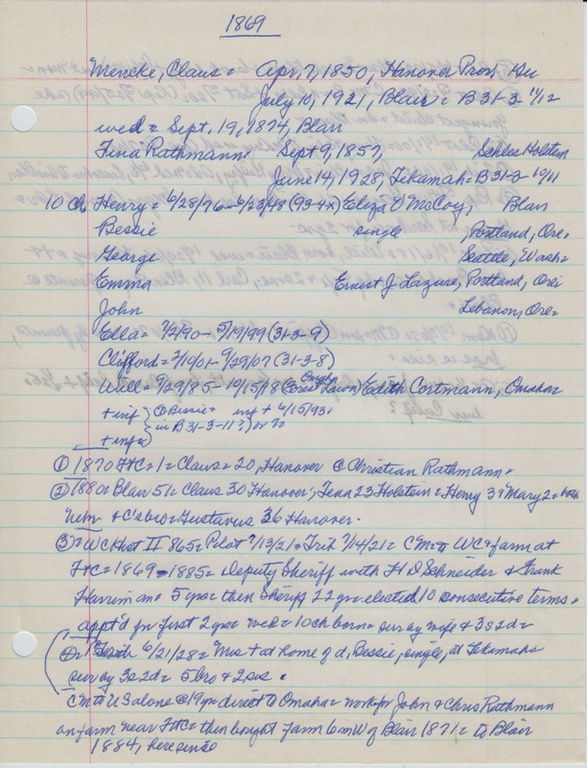 1869
Mencke, Claus = Apr. 7, 1850, Hanover Prov,
July 10, 1921, Blair = B 31-3-11/12
wed = Sept, 19, 1874, Blair
Tina Rathmann = Sept 9, 1857, Schles Holstein
June 14, 1928, Tekamah = B 31-3 10/11
10 ch Henry = 6/28/76 - 6/23/48 (93-4x) Eliza V McCoy, Blair
Bessie single Portland, Ore =
George Seattle, Wash =
Emma Ernest J Lazure, Portland, Ore =
John Lebanon, Ore =
Ella = 7/2/90 - 5/19/99 (31-3-9)
Clifford = 2/19/01 - 9/29/07 (31-3-8)
Will = 9/29/85 - 10/15/18 (Crest Lawn) Edith Cortmann, Omaha
+ inf ① Bessie = inf + 6/15/93 =
in B 31-3-11?) or
+ inf =
① 1870 FtC = 1 = Claus = 20, Hanover @ Christian Rathmann =
② 1880 = Blair 51 = Claus 30 Hanover; Tena 23 Holstein = Henry 3 = Mary 2 =
+ C's bro = Gustavus 36 Hanover.
③ = WC Hist II 865 = Pilot 7/13/21 = Trib 7/14/21 = C'm to WC = farm at
FtC = 1869 - 1885 = Deputy Sheriff with H D Schneider & Frank
Harriman = 5 yrs = then Sheriff 22 yr = elected 10 consecutive terms =
appt'd for first 2 yrs = wed = 10 ch born = surv by wife & 3 s 2 d =
6/21/28 = Mrs + at home of d, Bessie, single, at Tekamah =
surv by 3 s 2 d = 5 bro & 2 sis =
C'm to US alone @ 19 yr = direct to Omaha = work for John & Chris Rathmann
on farm near FtC = then bought farm 6 m W of Blair 1871 = to Blair
1884, here since